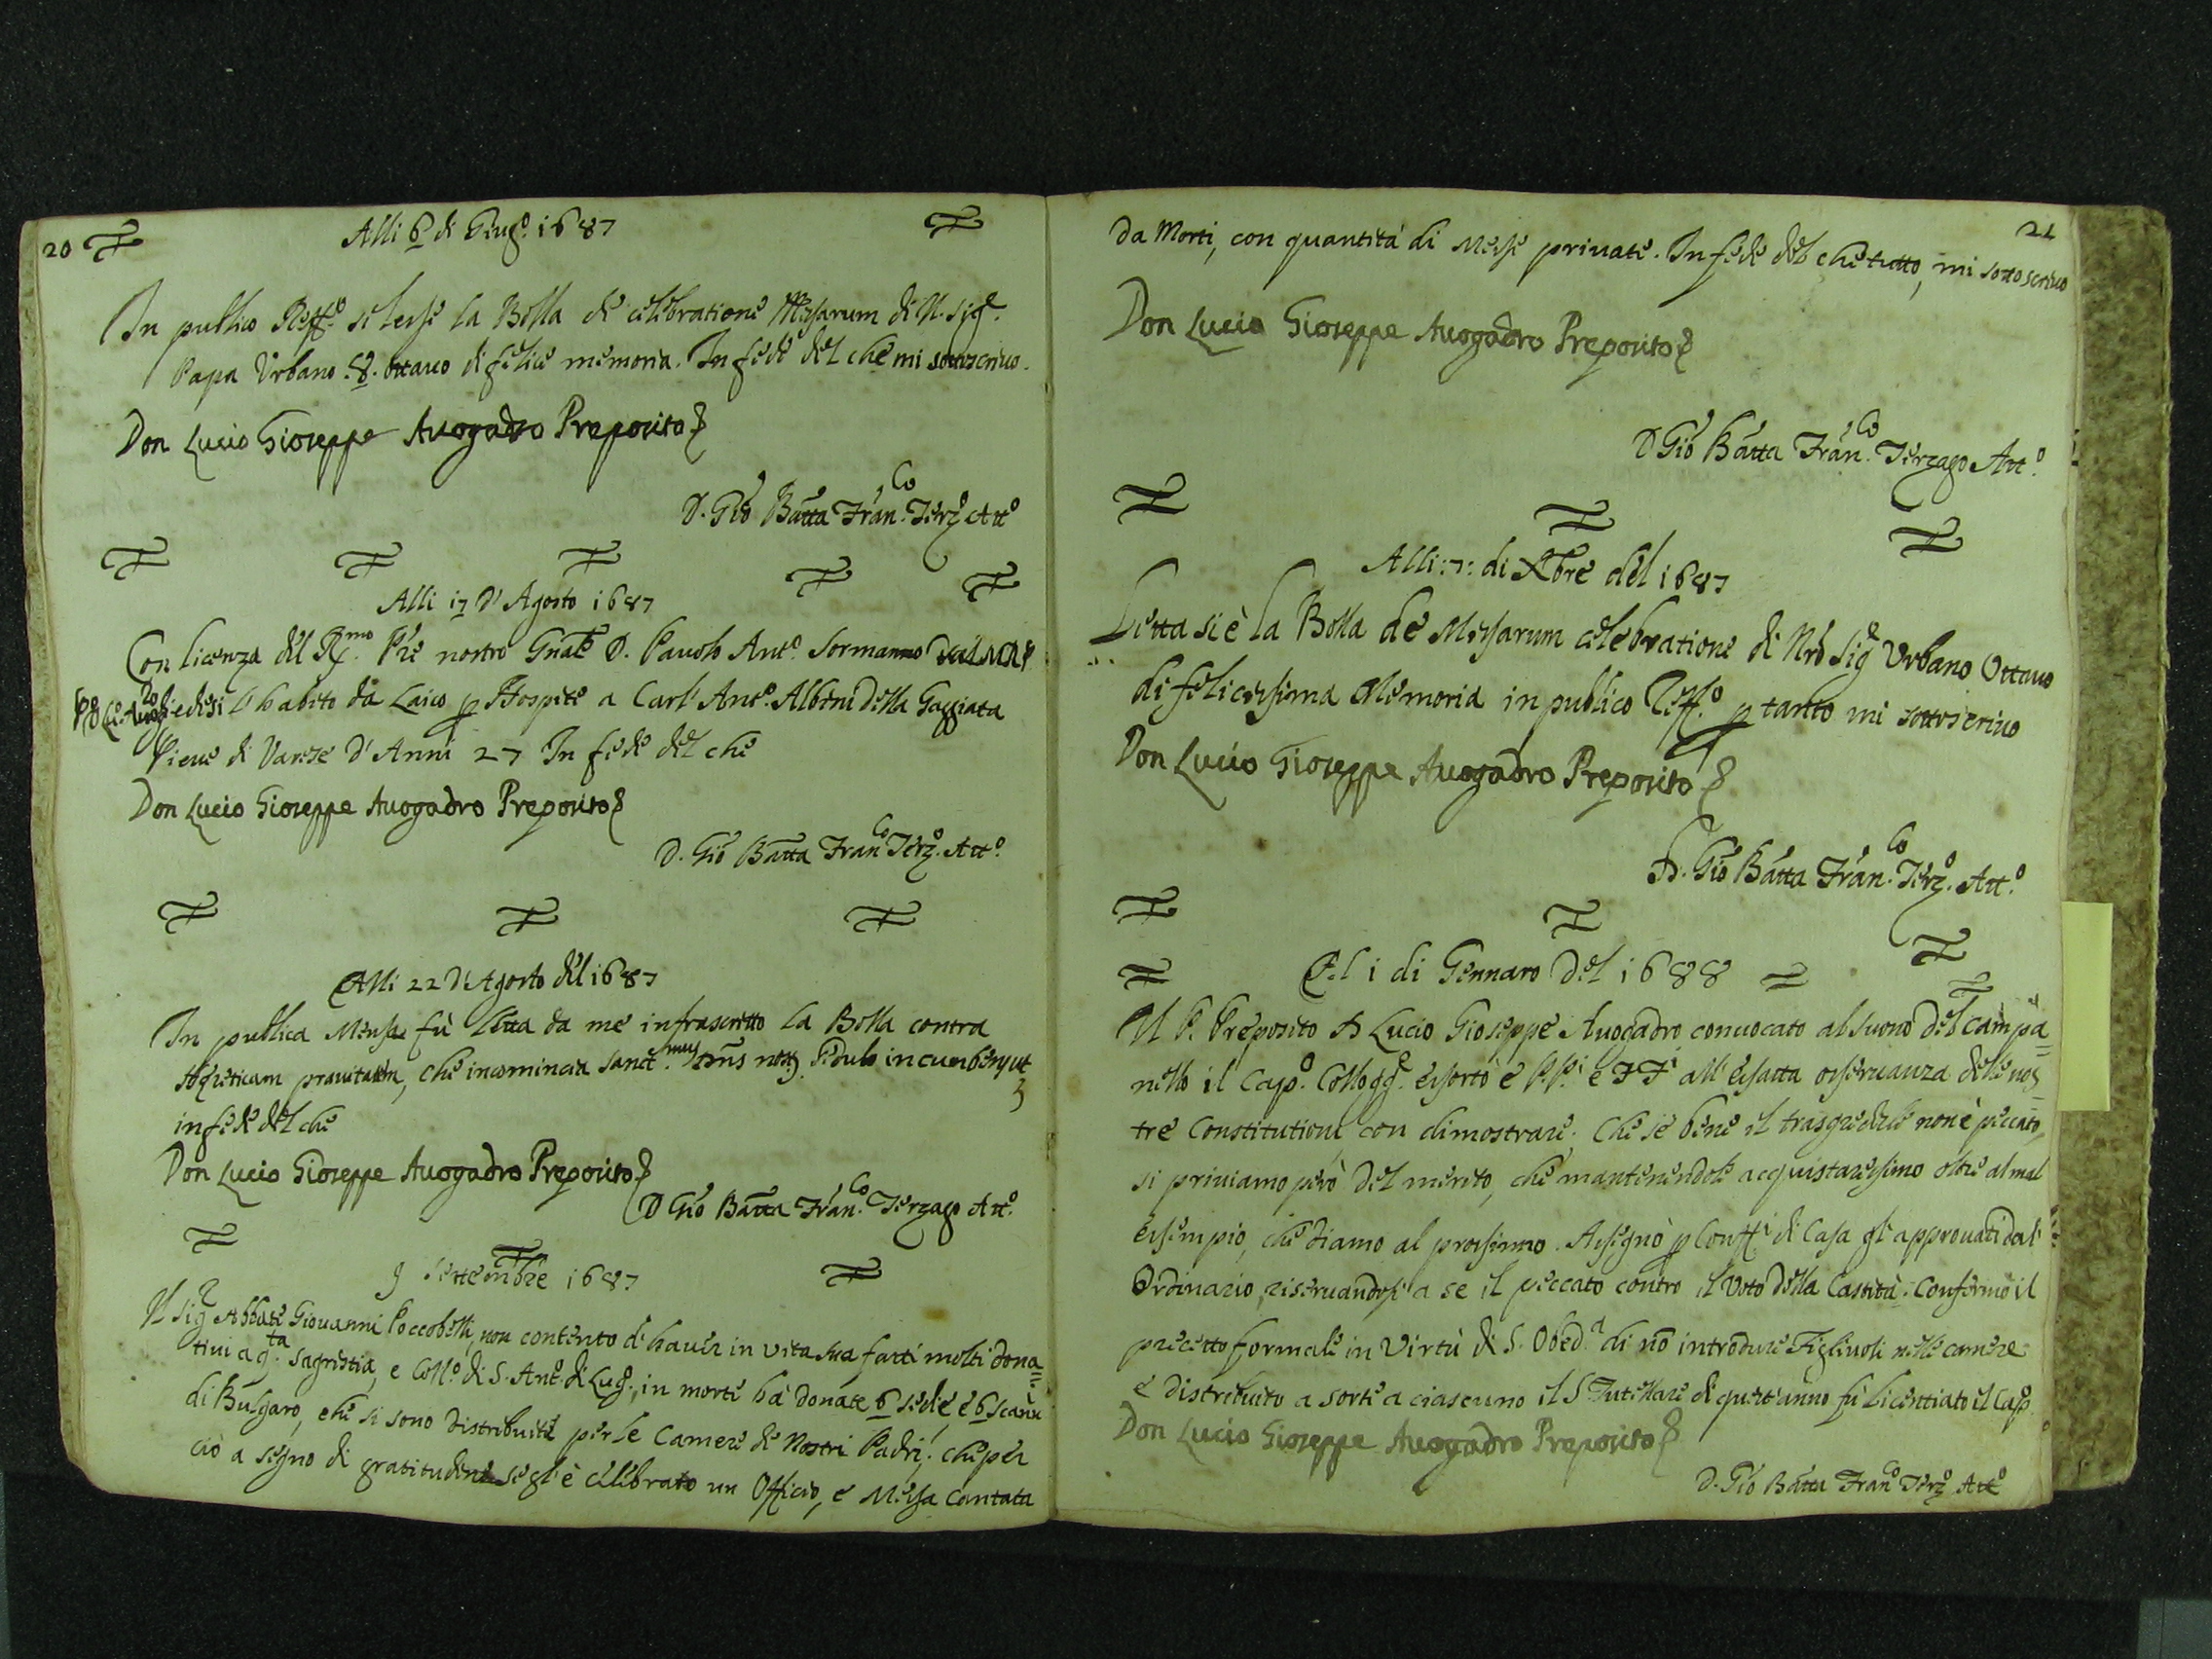 20
Alli 6 di Giug.o 1687
In publico Reff.o si lesse la Bolla de celebratione Missarum di N. Sig.e
Papa Urbano .8. ottauo di felice memoria. In fede del che mi sottoscriuo.
Don Lucio Gioseppe Auogadro Preposito
D. Gio Batta Fran.co Terz.o Att.o
Alli 17 d'Agosto 1687
Con licenza del R.mo Pre nostro Gnale D. Pauolo Ant.o Sormanno
diedesi l'habito da Laico p Hospite a Carl'Ant.o Albini della Gaggiata
Pieue di Varese d'Anni 27 In fede del che
Don Lucio Gioseppe Auogadro Preposito
D. Gio Batta Fran.co Terz.o Att.o
Alli 22 d'Agosto del 1687
In publica Mensa fù letta da me infrascritto la Bolla contra
hereticam prauitatem, che incomincia Sanct.mus Dnus nos
in fede del che
Don Lucio Gioseppe Auogadro Preposito
D Gio Batta Fran.co Terzago Att.o
9 Settembre 1687
Il Sig.r Abbate Giouanni Poccobelli, non contento d'hauer in vita sua fatti molti dona=
tiui a q.ta Sagristia, e Coll.o di S. Ant.o di Lug.o, in morte ha donate 6 sedie e 6 scanni
di Bulgaro, che si sono distribuite per le Camere de Nostri Padri; che per
ciò a segno di gratitudine se gl'è celebrato un Officio, e Messa cantata
21
da Morti, con quantità di Messe priuate. In fede del che tutto, mi sottoscriuo
Don Lucio Gioseppe Auogadro Preposito
D Gio Batta Fran.co Terzago Att.o
Alli :7: di Xbre del 1687
Letta si è la Bolla de Missarum celebratione di Nro Sig.e Urbano Ottauo
di felicissima Memoria in publico Reff.o p tanto mi sottoscriuo
Don Lucio Gioseppe Auogadro Preposito
D. Gio Batta Fran.co Terz.o Att.o
Il 1 di Gennaro del 1688
Il P. Preposito D Lucio Gioseppe Auogadro conuocato al suono del campa=
nello il Cap.o essortò e P.P.i e FF.i all'essatta osseruanza delle nos=
tre Constitutioni con dimostrare. Che se bene il trasgredirle non è peccato,
si priuiamo però del merito, che mantenendole acquistaressimo oltre al mal
essempio, che diamo al prossimo. Assegnò p Conff.i di Casa gl'approuati dal'
Ordinario, riseruandosi a se il peccato contro il Voto della Castità. Confermò il
precetto formale in Virtù di S. Obed.a di nō introdure Figliuoli nelle camere
e distribuito a sorte a ciascuno il S Tutellare di quest'anno fù licentiato il Cap.o
Don Lucio Gioseppe Auogadro Preposito
D. Gio Batta Fran.co Terz.o Att.o